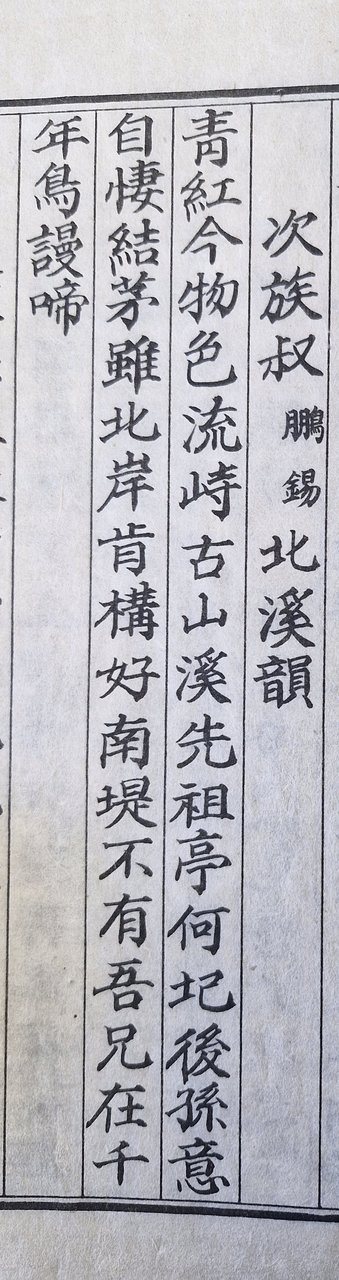 次族叔鵬錫北溪韻
青紅今物色流峙古山溪先祖亭何圮後孫意
自悽結茅雖北岸肯構好南堤不有吾兄在千
年鳥謾啼